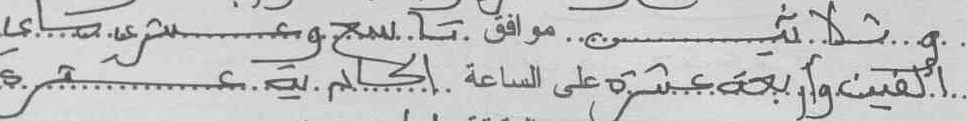 و ثلاثين موافق تاسع وعشري ماي
ألفين وأربعة عشرة على الساعة الحادية عشرة